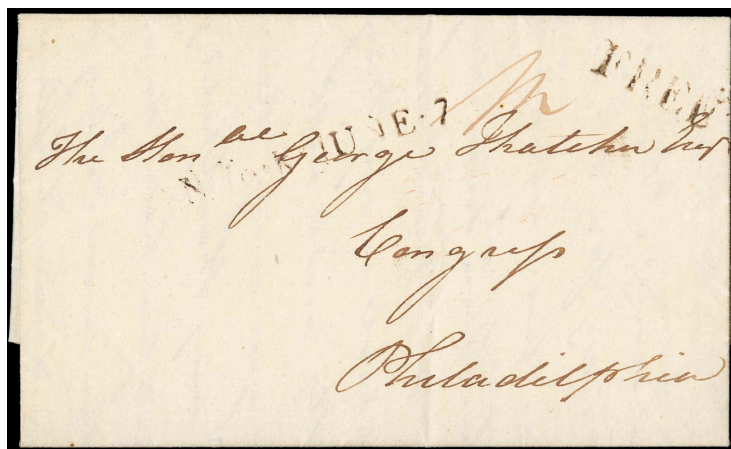 FREE
N. York JUNE·7
The Hon ble George Thatcher Esqr
Congreſs
Philadelphia